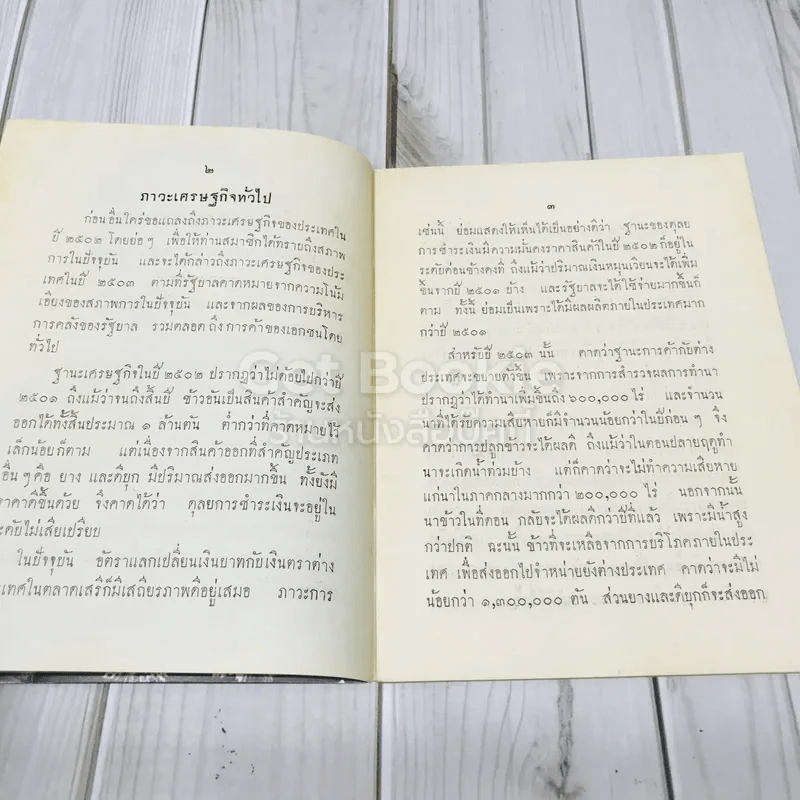 ๒
ภาวะเศรษฐกิจทั่วไป
ก่อนอื่นใคร่ขอแถลงถึงภาวะเศรษฐกิจของประเทศใน
ปี ๒๕๐๒ โดยย่อ ๆ เพื่อให้ท่านสมาชิกได้ทราบถึงสภาพ
การในปัจจุบัน และจะได้กล่าวถึงภาวะเศรษฐกิจของประ
เทศในปี ๒๕๐๓ ตามที่รัฐบาลคาดหมายจากความโน้ม
เอียงของสภาพการในปัจจุบัน และจากผลของการบริหาร
การคลังของรัฐบาล รวมตลอดถึงการค้าของเอกชนโดย
ทั่วไป
ฐานะเศรษฐกิจในปี ๒๕๐๒ ปรากฏว่าไม่ด้อยไปกว่าปี
๒๕๐๑ ถึงแม้ว่าจนถึงสิ้นปี ข้าวอันเป็นสินค้าสำคัญจะส่ง
ออกได้ทั้งสิ้นประมาณ ๑ ล้านตัน ต่ำกว่าที่คาดหมายไว้
เล็กน้อยก็ตาม แต่เนื่องจากสินค้าออกที่สำคัญประเภท
อื่น ๆ คือ ยาง และดีบุก มีปริมาณส่งออกมากขึ้น ทั้งยังมี
ราคาดีขึ้นด้วย จึงคาดได้ว่า ดุลยการชำระเงินจะอยู่ใน
ระดับไม่เสียเปรียบ
ในปัจจุบัน อัตราแลกเปลี่ยนเงินบาทกับเงินตราต่าง
ประเทศในตลาดเสรีก็มีเสถียรภาพดีอยู่เสมอ ภาวะการ
๓
เช่นนี้ ย่อมแสดงให้เห็นได้เป็นอย่างดีว่า ฐานะของดุลย
การชำระเงินมีความมั่นคงราคาสินค้าในปี ๒๕๐๒ ก็อยู่ใน
ระดับค่อนข้างคงที่ ถึงแม้ว่าปริมาณเงินหมุนเวียนจะได้เพิ่ม
ขึ้นจากปี ๒๕๐๑ บ้าง และรัฐบาลจะได้ใช้จ่ายมากขึ้นก็
ตาม ทั้งนี้ ย่อมเป็นเพราะได้มีผลผลิตภายในประเทศมาก
กว่าปี ๒๕๐๑
สำหรับปี ๒๕๐๓ นั้น คาดว่าฐานะการค้ากับต่าง
ประเทศจะขยายตัวขึ้น เพราะจากการสำรวจผลการทำนา
ปรากฏว่าได้ทำนาเพิ่มขึ้นถึง ๖๐๐,๐๐๐ ไร่ และจำนวน
นาที่ได้รับความเสียหายก็มีจำนวนน้อยกว่าในปีก่อน ๆ จึง
คาดว่าการปลูกข้าวจะได้ผลดี ถึงแม้ว่าในตอนปลายฤดูทำ
นาจะเกิดน้ำท่วมบ้าง แต่ก็คาดว่าจะไม่ทำความเสียหาย
แก่นาในภาคกลางมากกว่า ๒๐๐,๐๐๐ ไร่ นอกจากนั้น
นาข้าวในที่ดอน กลับจะได้ผลดีกว่าปีที่แล้ว เพราะมีน้ำสูง
กว่าปกติ ฉะนั้น ข้าวที่จะเหลือจากการบริโภคภายในประ
เทศ เพื่อส่งออกไปจำหน่ายยังต่างประเทศ คาดว่าจะมีไม่
น้อยกว่า ๑,๓๐๐,๐๐๐ ตัน ส่วนยางและดีบุกก็จะส่งออก